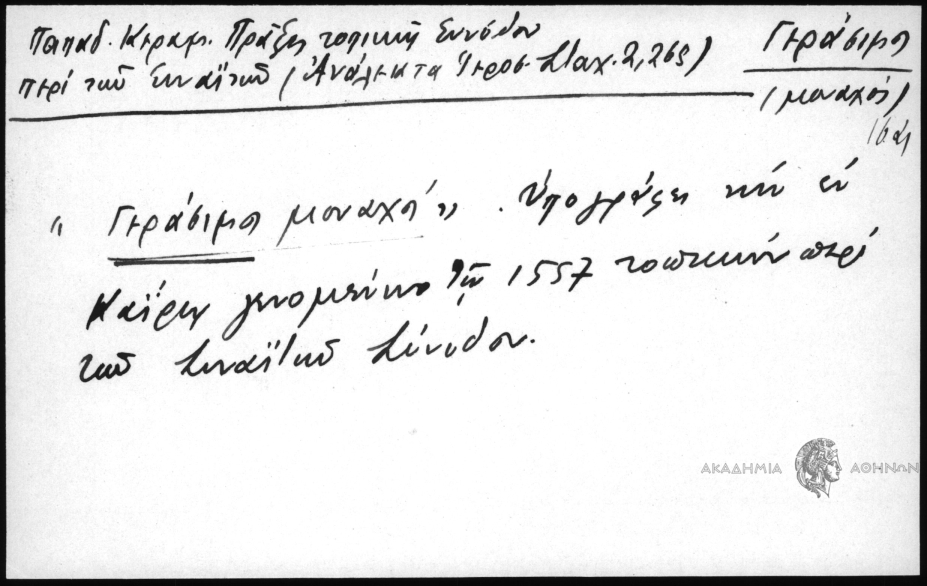 Παπαδ. Κεραμ. Πράξεις τοπικής Συνόδου
περί των Σιναϊτών (Ἀνάλεκτα Ἱεροσ. Σταχ. 2, 265)
Γεράσιμος
(μοναχός)
16 αι
" Γεράσιμος μοναχός ". Ὑπογράφει την εν
Καΐρῳ γενομένην τῷ 1557 τοπικήν περί
των Σιναϊτών Σύνοδον.
ΑΚΑΔΗΜΙΑ ΑΘΗΝΩΝ